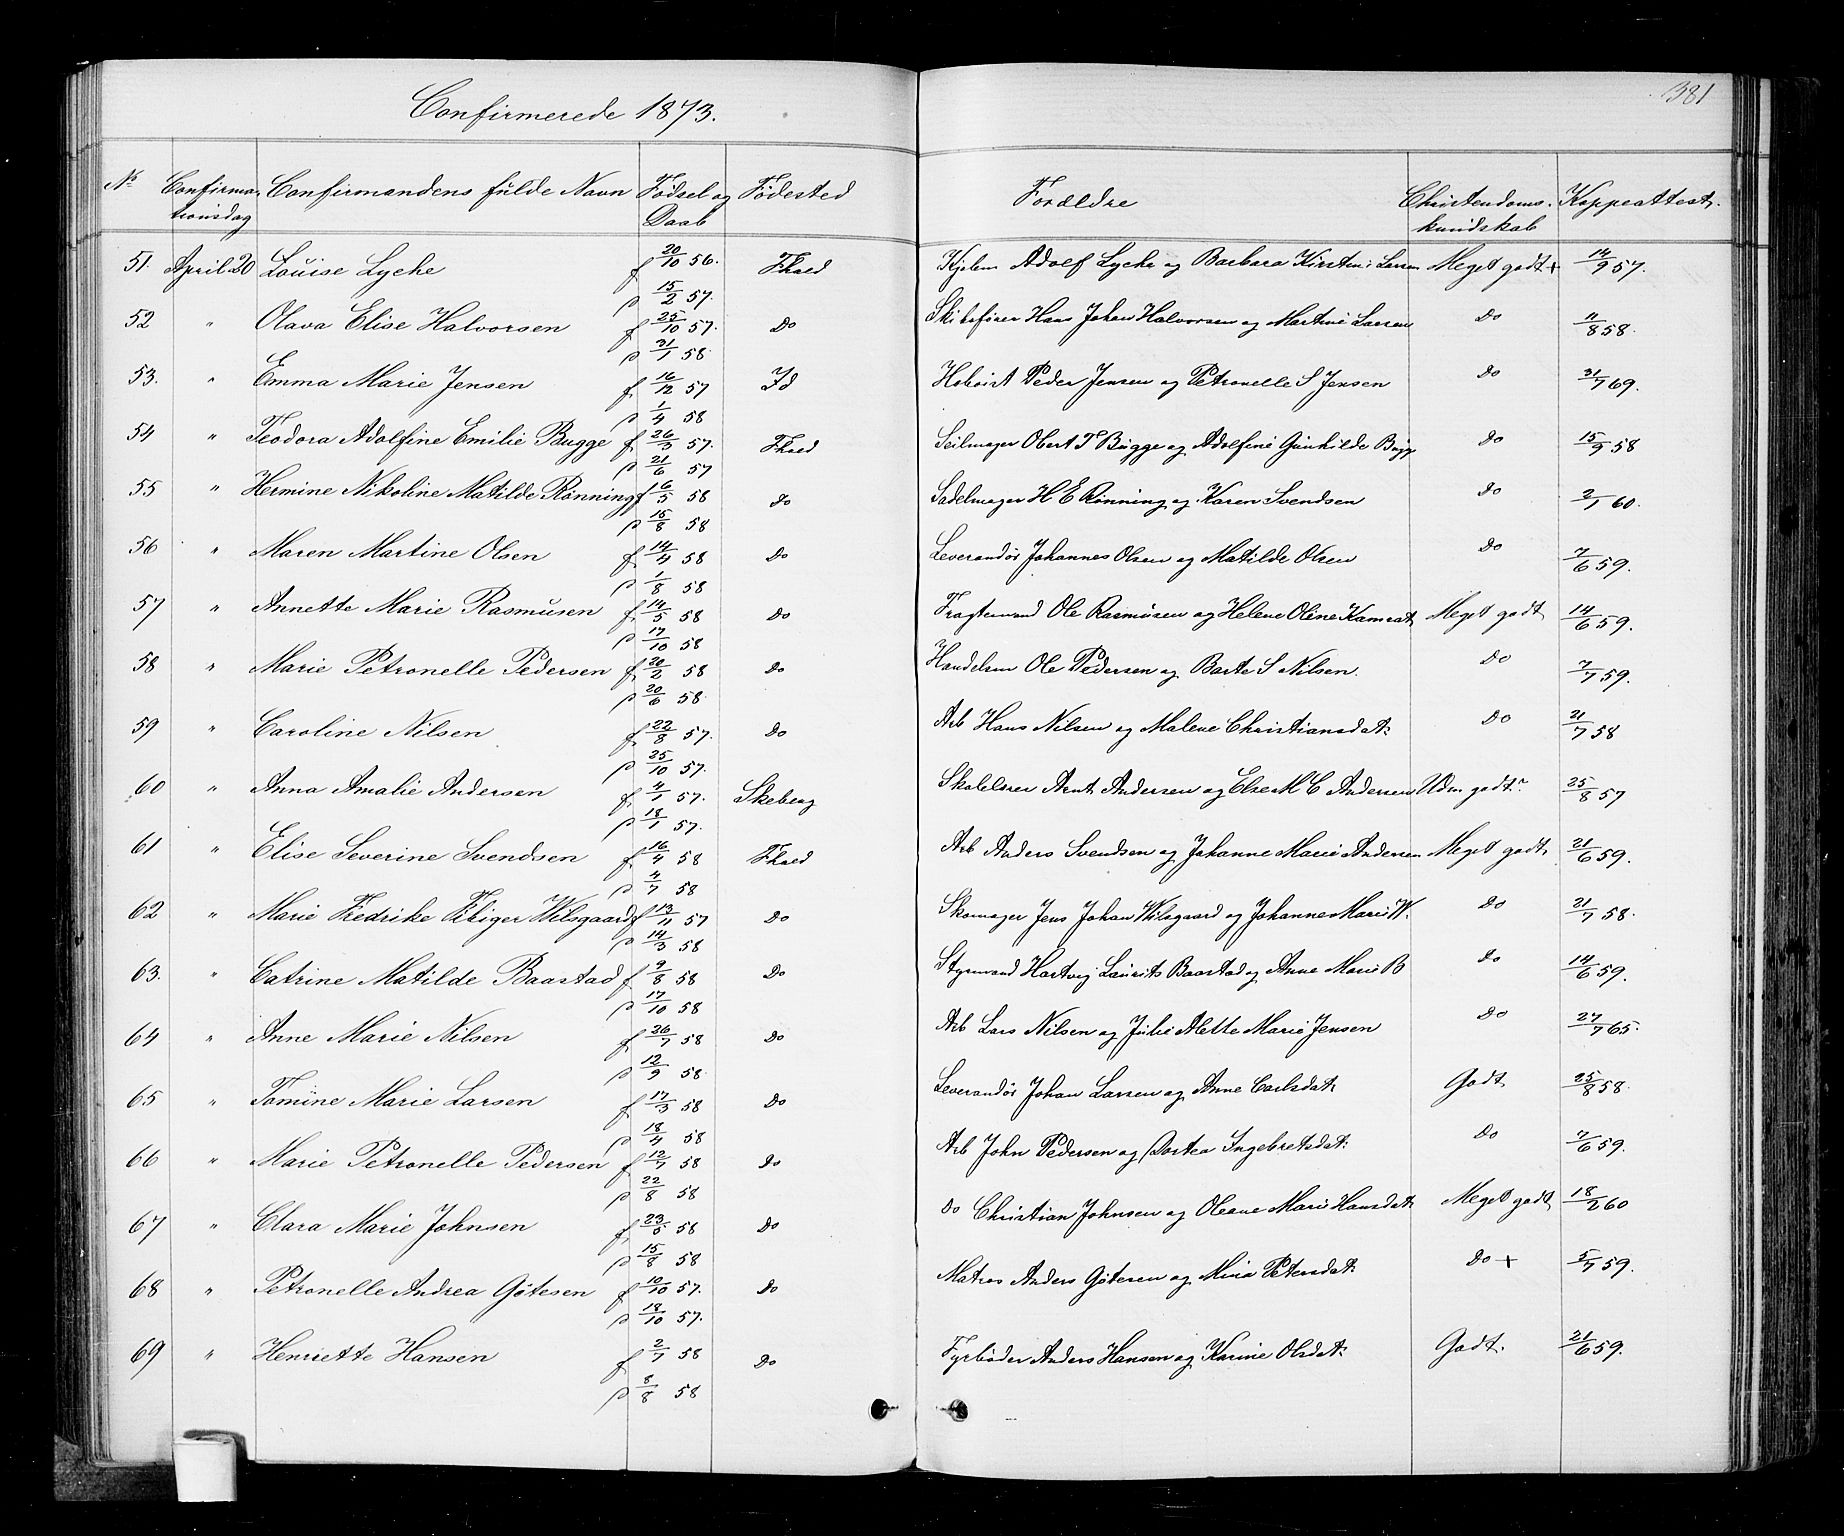 Confirmerede 1873.
381
No Confirma- Confirmandens fulde Navn Fødsel og Fødested Forældre Christendoms- Koppeattest.
tionsdag Daab kundskab
51. April 20 Louise Lyche f 20/10 56. Fhald Adolf Lyche og Barbara Kirstine Larsen Meget godt + 14/9 57.
p 15/2 57.
52 " Olava Elise Halvorsen f 25/10 57. Do Skibsfører Hans Johan Halvorsen og Martine Larsen Do 11/8 58.
p 31/1 58.
53. " Emma Marie Jensen f 16/12 57 Id Hoboist Peder Jensen og Petronelle S Jensen Do 31/7 69.
p 1/4 58
54 " Teodora Adolfine Emilie Bugge f 26/3 57. Fhald Seilmager Obert T Bugge og Adolfine Gunhilde Bugge Do 15/9 58
p 21/6 57
55 " Hermine Nikoline Matilde Rønning f 6/5 58 Do Sadelmager H E Rønning og Karen Svendsen Do 2/1 60.
p 15/8 58
56 " Maren Martine Olsen f 14/4 58 Do Leverandør Johannes Olsen og Matilde Olsen Do 7/6 59.
p 1/8 58
57 " Annette Marie Rasmusen f 14/5 58 Do Fragtemand Ole Rasmusen og Helene Oline Kamrat Meget godt 14/6 59.
p 17/10 58
58 " Marie Petronelle Pedersen f 20/2 58 Do Handelsm Ole Pedersen og Barte S Nilsen. Do 7/7 59.
p 20/6 58.
59 " Caroline Nilsen f 22/8 57. Do Arb Hans Nilsen og Malene Christiansdat: Do 21/7 58
p 25/10 57.
60 " Anna Amalie Andersen f 4/1 57. Skeberg Skolelærer Arnt Andersen og Else M C Andersen Udm godt. 25/8 57
p 18/1 57.
61 " Elise Severine Svendsen f 16/4 58 Fhald Arb Anders Svendsen og Johanne Marie Andersen Meget godt 21/6 59.
p 4/7 58
62 " Marie Fredrike Fibiger Wilsgaard f 13/11 57 Do Skomager Jens Johan Wilsgaard og Johanne Marie W. Do 21/7 58.
p 14/3 58
63. " Catrine Matilde Baastad f 9/8 58 Do Styrmand Hartvig Laurits Baastad og Anne Marie B Do 14/6 59.
p 17/10 58
64 " Anne Marie Nilsen f 26/7 58 Do Arb Lars Nilsen og Julie Mette Marie Jensen Do 27/7 65.
p 12/9 58.
65 " Tomine Marie Larsen f 17/3 58 Do Leverandør Johan Larsen og Anne Carlsdat: Godt 25/8 58.
p 18/4 58
66 " Marie Petronelle Pedersen f 12/7 58 Do Arb John Pedersen og Dortea Ingebretsdat: Do 7/6 59.
p 22/8 58
67 " Clara Marie Johnsen f 23/5 58 Do Do Christian Johnsen og Oleane Marie Hansdat: Meget godt 18/2 60
p 15/8 58
68 " Petronelle Andrea Gøtesen f 10/10 57. Do Matros Anders Gøtesen og Mina Petersdat: Do + 5/7 59.
p 18/10 57.
69 " Henriette Hansen f 2/7 58 Do Fyrbøder Anders Hansen og Karine Olsdat: Godt. 21/6 59.
p 8/8 58